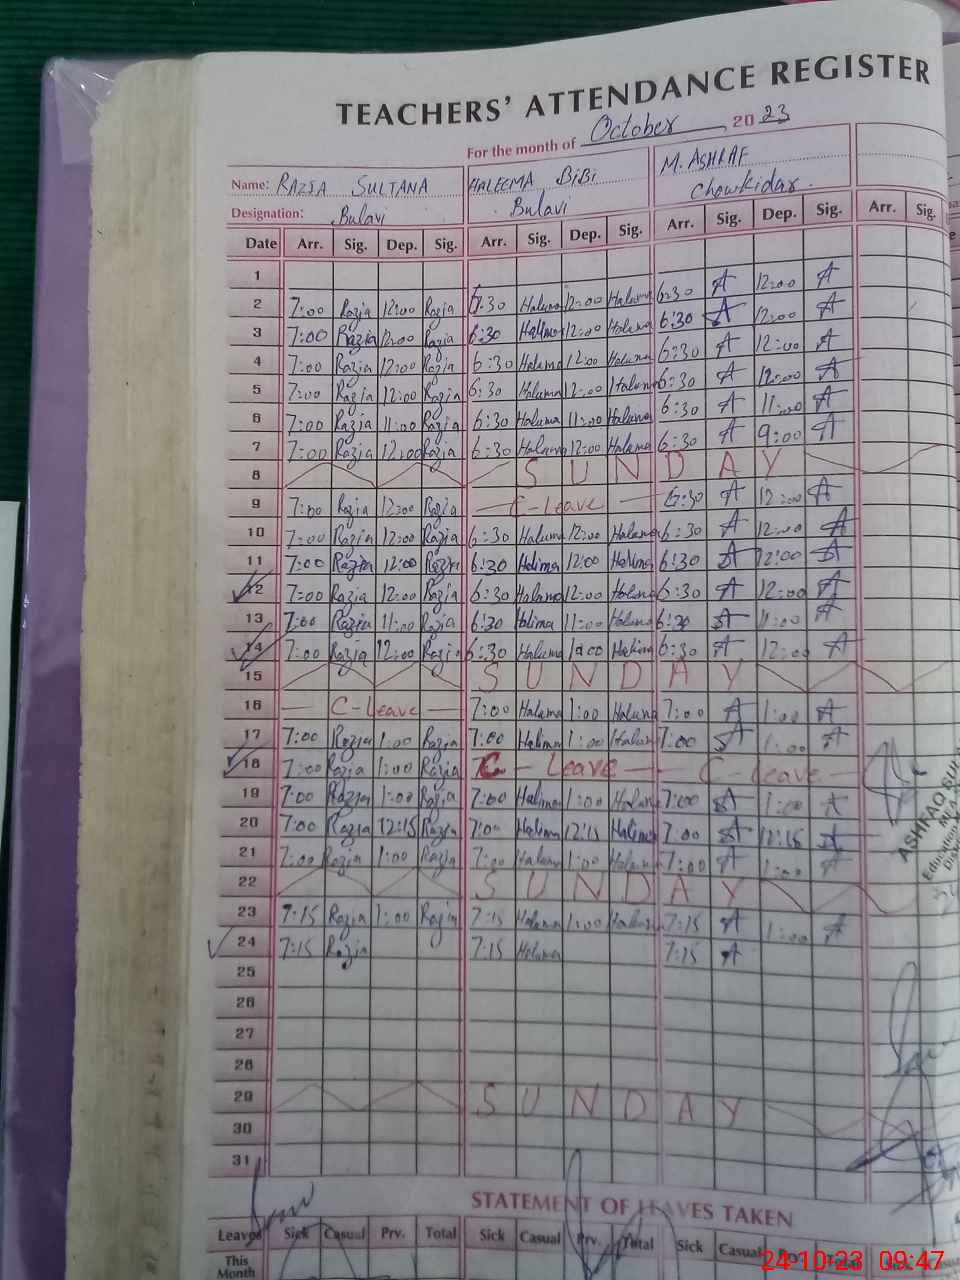 TEACHERS' ATTENDANCE REGISTER
For the month of October 2023
Name: RAZIA SULTANA HALEEMA BIBI M. ASHRAF
Designation: Bulavi Bulavi Chowkidar.
Date Arr. Sig. Dep. Sig. Arr. Sig. Dep. Sig. Arr. Sig. Dep. Sig. Arr. Sig.
1
2 7:00 Razia 12:00 Razia 6:30 Halima 12:00 Halima 6:30 A 12:00 A
3 7:00 Razia 12:00 Razia 6:30 Halima 12:00 Halima 6:30 A 12:00 A
4 7:00 Razia 12:00 Razia 6:30 Halima 12:00 Halima 6:30 A 12:00 A
5 7:00 Razia 12:00 Razia 6:30 Halima 12:00 Halima 6:30 A 12:00 A
6 7:00 Razia 11:00 Razia 6:30 Halima 11:00 Halima 6:30 A 11:00 A
7 7:00 Razia 12:00 Razia 6:30 Halima 12:00 Halima 6:30 A 9:00 A
8 SUNDAY
9 7:00 Razia 12:00 Razia C-Leave 6:30 A 12:00 A
10 7:00 Razia 12:00 Razia 6:30 Halima 12:00 Halima 6:30 A 12:00 A
11 7:00 Razia 12:00 Razia 6:30 Halima 12:00 Halima 6:30 A 12:00 A
12 7:00 Razia 12:00 Razia 6:30 Halima 12:00 Halima 6:30 A 12:00 A
13 7:00 Razia 11:00 Razia 6:30 Halima 11:00 Halima 6:30 A 11:00 A
14 7:00 Razia 12:00 Razia 6:30 Halima Halima 6:30 A 12:00 A
15 SUNDAY
16 C-Leave 7:00 Halima 1:00 Halima 7:00 A 1:00 A
17 7:00 Razia 1:00 Razia 7:00 Halima 1:00 Halima 7:00 A 1:00 A
18 7:00 Razia 1:00 Razia C-Leave C-Leave
19 7:00 Razia 1:00 Razia 7:00 Halima 1:00 Halima 7:00 A 1:00 A
20 7:00 Razia 12:15 Razia 7:00 Halima 12:15 Halima 7:00 A 12:15 A
21 7:00 Razia 1:00 Razia 7:00 Halima 1:00 Halima 7:00 A 1:00 A
22 SUNDAY
23 7:15 Razia 1:00 Razia 7:15 Halima 1:00 Halima 7:15 A 1:00 A
24 7:15 Razia 7:15 Halima 7:15 A
25
26
27
28
29 SUNDAY
30
31
ASHFAQ
STATEMENT OF LEAVES TAKEN
Leaves Sick Casual Prv. Total Sick Casual Prv. Total Sick Casual
This Month
24-10-23 09:47